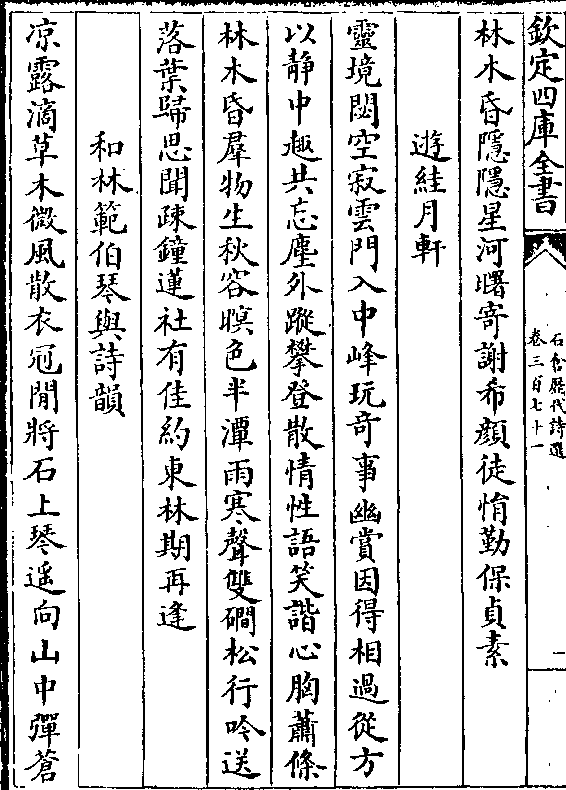 欽定四庫全書
石倉歷代詩選
卷三百七十一
林木昏隱隱星河曙寄謝希顔徒惰勤保貞素
遊絓月軒
靈境閟空寂雲門入中峰玩奇事幽賞因得相過從方
以静中趣共忘塵外蹤攀登散情性語笑諧心胸蕭條
林木昏羣物生秋容暝色半潭雨寒聲雙磵松行吟送
落葉歸思聞疎鐘蓮社有佳約東林期再逢
和林範伯琴與詩韻
凉露滴草木微風散衣冠閒將石上琴遥向山中彈蒼